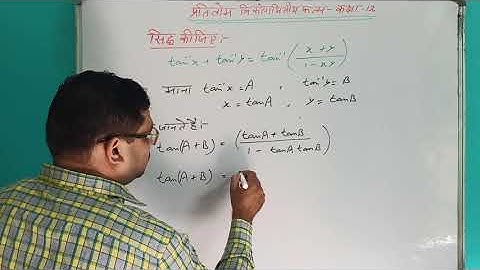 प्रतिलोम त्रिकोणमितीय फलन - कक्षा-12
सिद्ध कीजिए:-
tan⁻¹x + tan⁻¹y = tan⁻¹ ( x + y / 1 - xy )
माना tan⁻¹x = A , tan⁻¹y = B
x = tanA , y = tanB
जानते हैं:-
tan(A + B) = ( tanA + tanB / 1 - tanA tanB )
tan(A + B) =